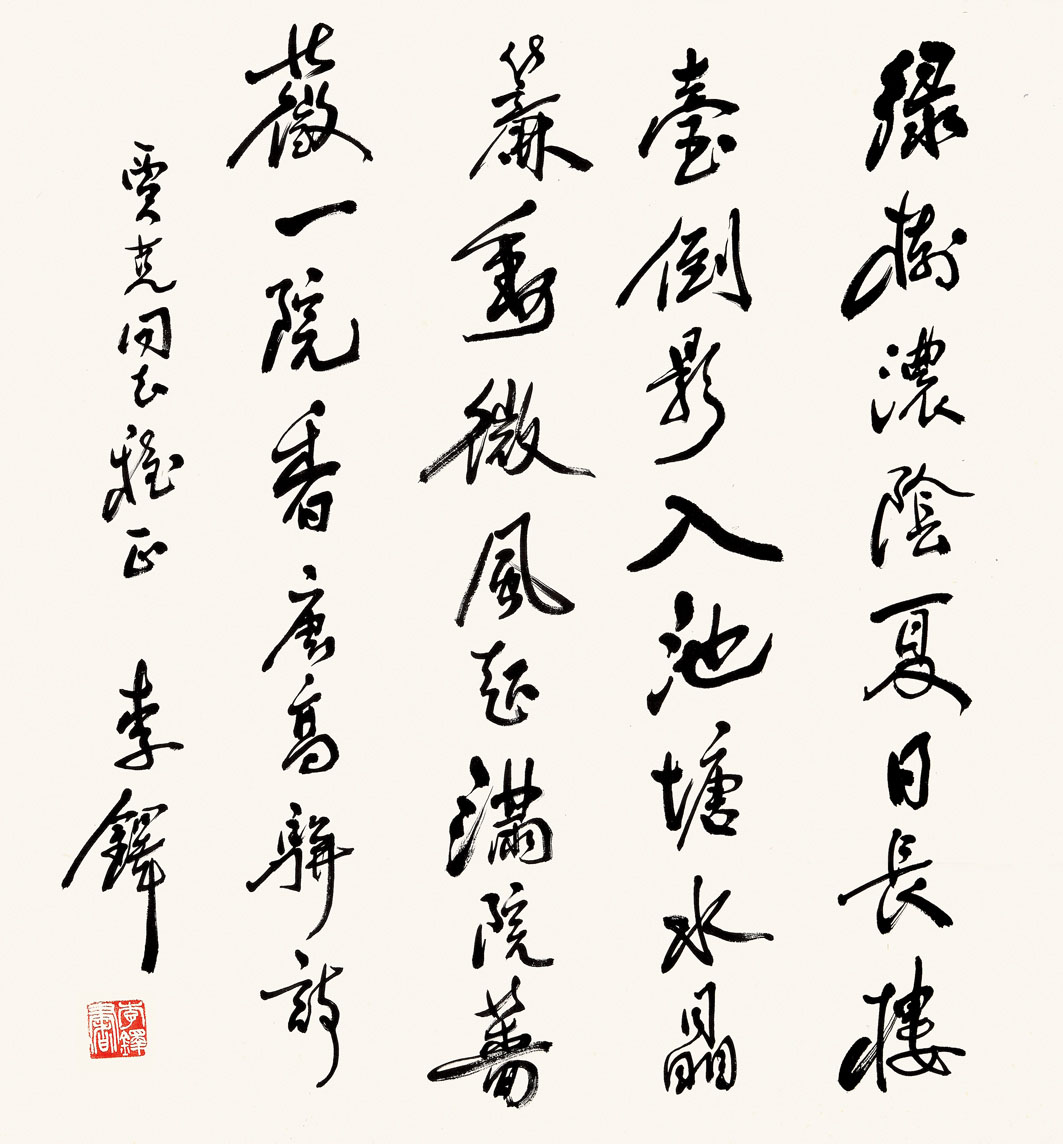 綠樹濃陰夏日長樓
臺倒影入池塘水晶
簾動微風起滿院薔
薇一院香唐高駢詩
賈克同志雅正 李鐸
李鐸書印